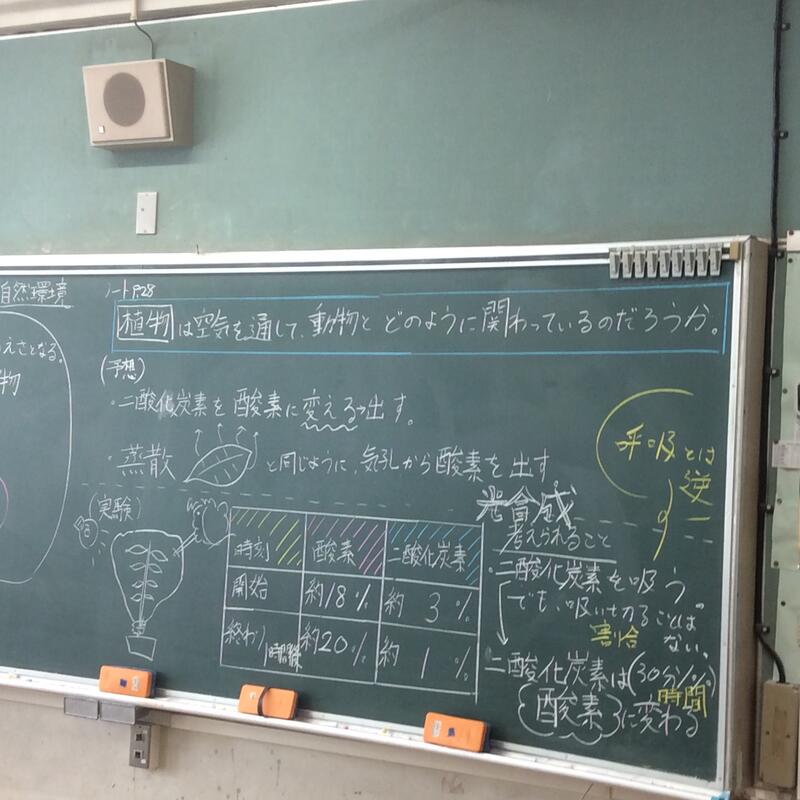 自然環境
えさとなる。
物
ノートP.28
植物は空気を通して、動物とどのように関わっているのだろうか。
(予想)
・二酸化炭素を酸素に変える→出す。
・蒸散
と同じように、気孔から酸素を出す
呼吸とは
逆
(実験)
時刻 酸素 二酸化炭素
開始 約18% 約3%
終わり 1時間後 約20% 約1%
考えられること
・二酸化炭素を吸う
でも、吸い切ることはない。
割合
二酸化炭素は(30分/1%)
時間
酸素に変わる